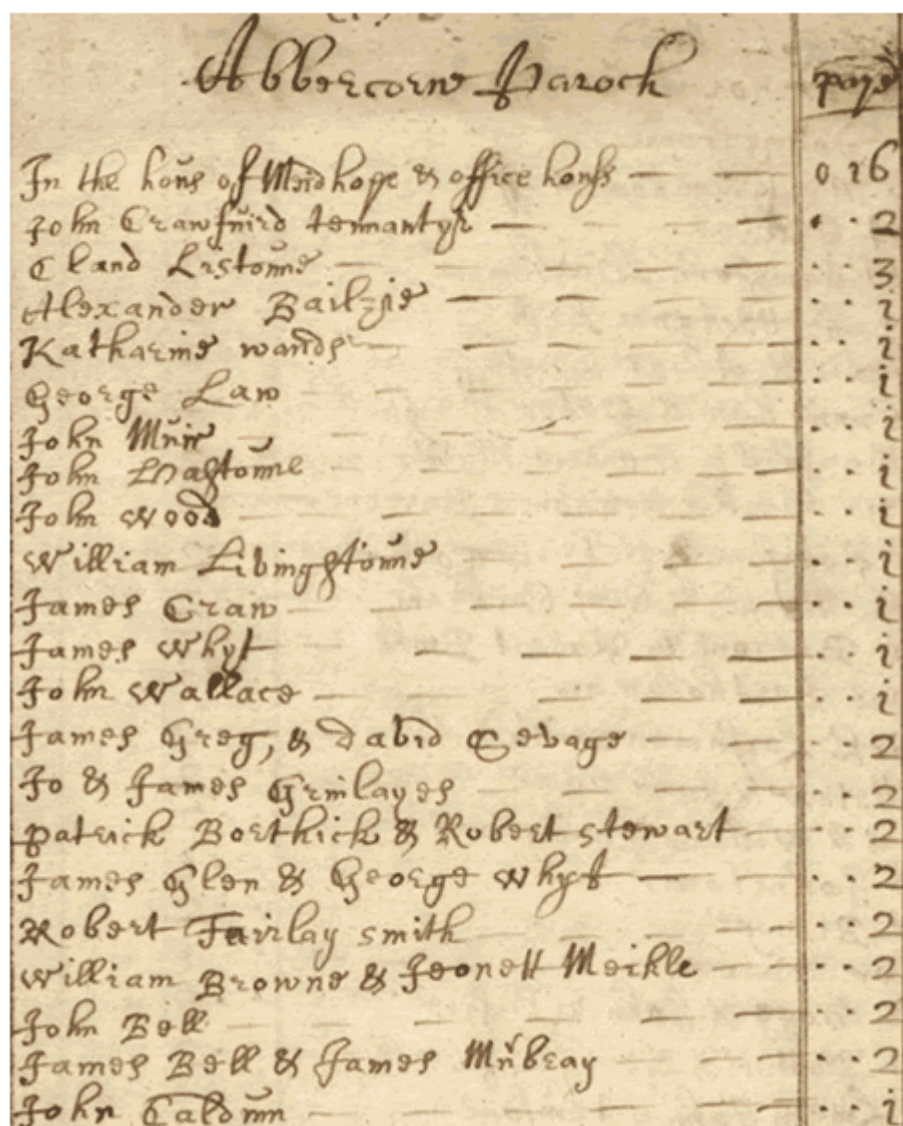 Abbercorne Parock
In the hous of Meidhope & office houss 0 16
John Crawfuird tennantys 2
Cland Listoune 3
Alexander Bailzie 1
Katharine wands 1
George Law 1
John Muir 1
John 1
John Wood 1
William Livingstoune 1
James Craw 1
James Whyt 1
John Wallace 1
James Greg, & david Sevage 2
Jo & James Grinlayes 2
Patrick Borthick & Robert Stewart 2
James Glen & George Whyt 2
Robert Fairlay smith 2
William Browne & Jeonett Meikle 2
John Bell 2
James Bell & James Mubray 2
John Caldun 1